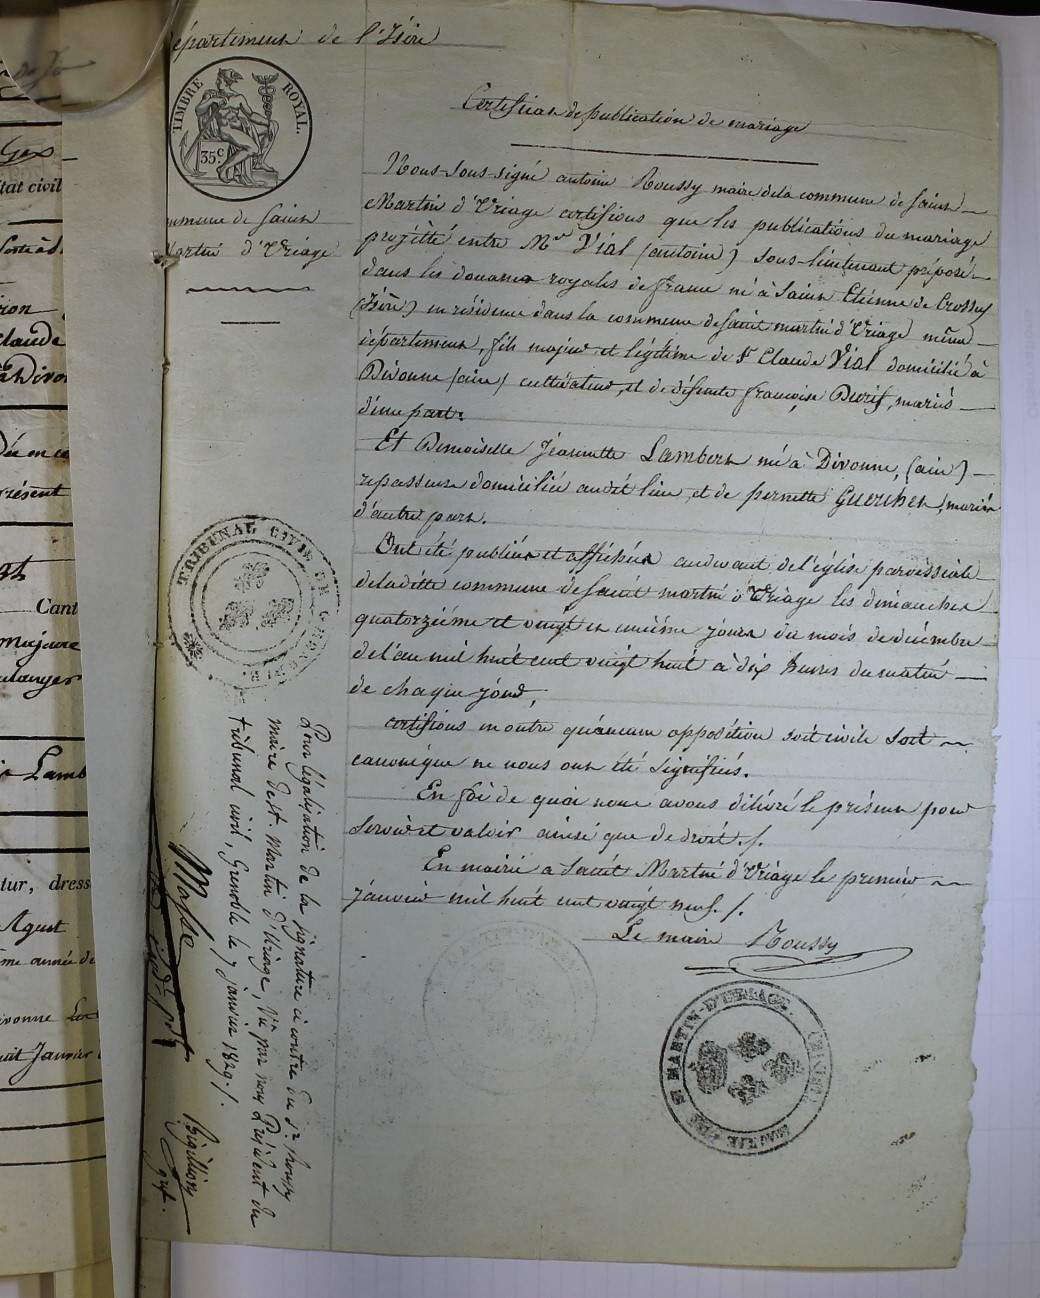 épartement de l'Isère
TIMBRE ROYAL.
35c
mmune de Saint
Martin d'Uriage
Certificat de publication de mariage
Nous sous-signé antoine Roussy maire de la commune de Saint
Martin d'Uriage certifions que les publications du mariage
projetté entre Mr Vial (antoine) sous-lieutenant préposé
dans les douanes royales de france né à Saint Etienne de Crossey
(Isère) en résidence dans la commune de saint martin d'Uriage même
département, fils majeur et légitime de Sr Claude Vial domicilié à
Divonne (ain) cultivateur, et de défunte françoise Burif, mariés
d'une part.
Et Demoiselle Jeannette Lambert né à Divonne, (ain)
repasseuse domiciliée audit lieu et de pernette Guerchet, mariés
d'autre part.
Ont été publiées et affichées au devant de l'église paroissiale
de la ditte commune de saint martin d'Uriage les dimanches
quatorzième et vingt et unième jours du mois de décembre
de l'an mil huit cent vingt huit à dix heures du matin
de chaque jour,
certifions en outre qu'aucune opposition soit civile soit
canonique ne nous ont été signifiés.
En foi de quoi nous avons délivré le présent pour
servir et valoir ainsi que de droit ./.
En mairie a saint Martin d'Uriage le premier
janvier mil huit cent vingt neuf. /.
Le maire Roussy
TRIBUNAL CIVIL DE GRENOBLE
Pour légalisation de la signature ci contre du Sr. Roussy
maire de St. Martin d'Uriage, Vu par nous Président du
tribunal civil, Grenoble le 7 janvier 1829./.
Bigillion
gref.
MAIRIE DE ST MARTIN-D'URIAGE. (ISERE)
Gex
tat civil
Claude
Divon
résent
Cant
majeure
ulanger
Lamb
tur, dress
Agent
me année de
ivonne
uit Janvier